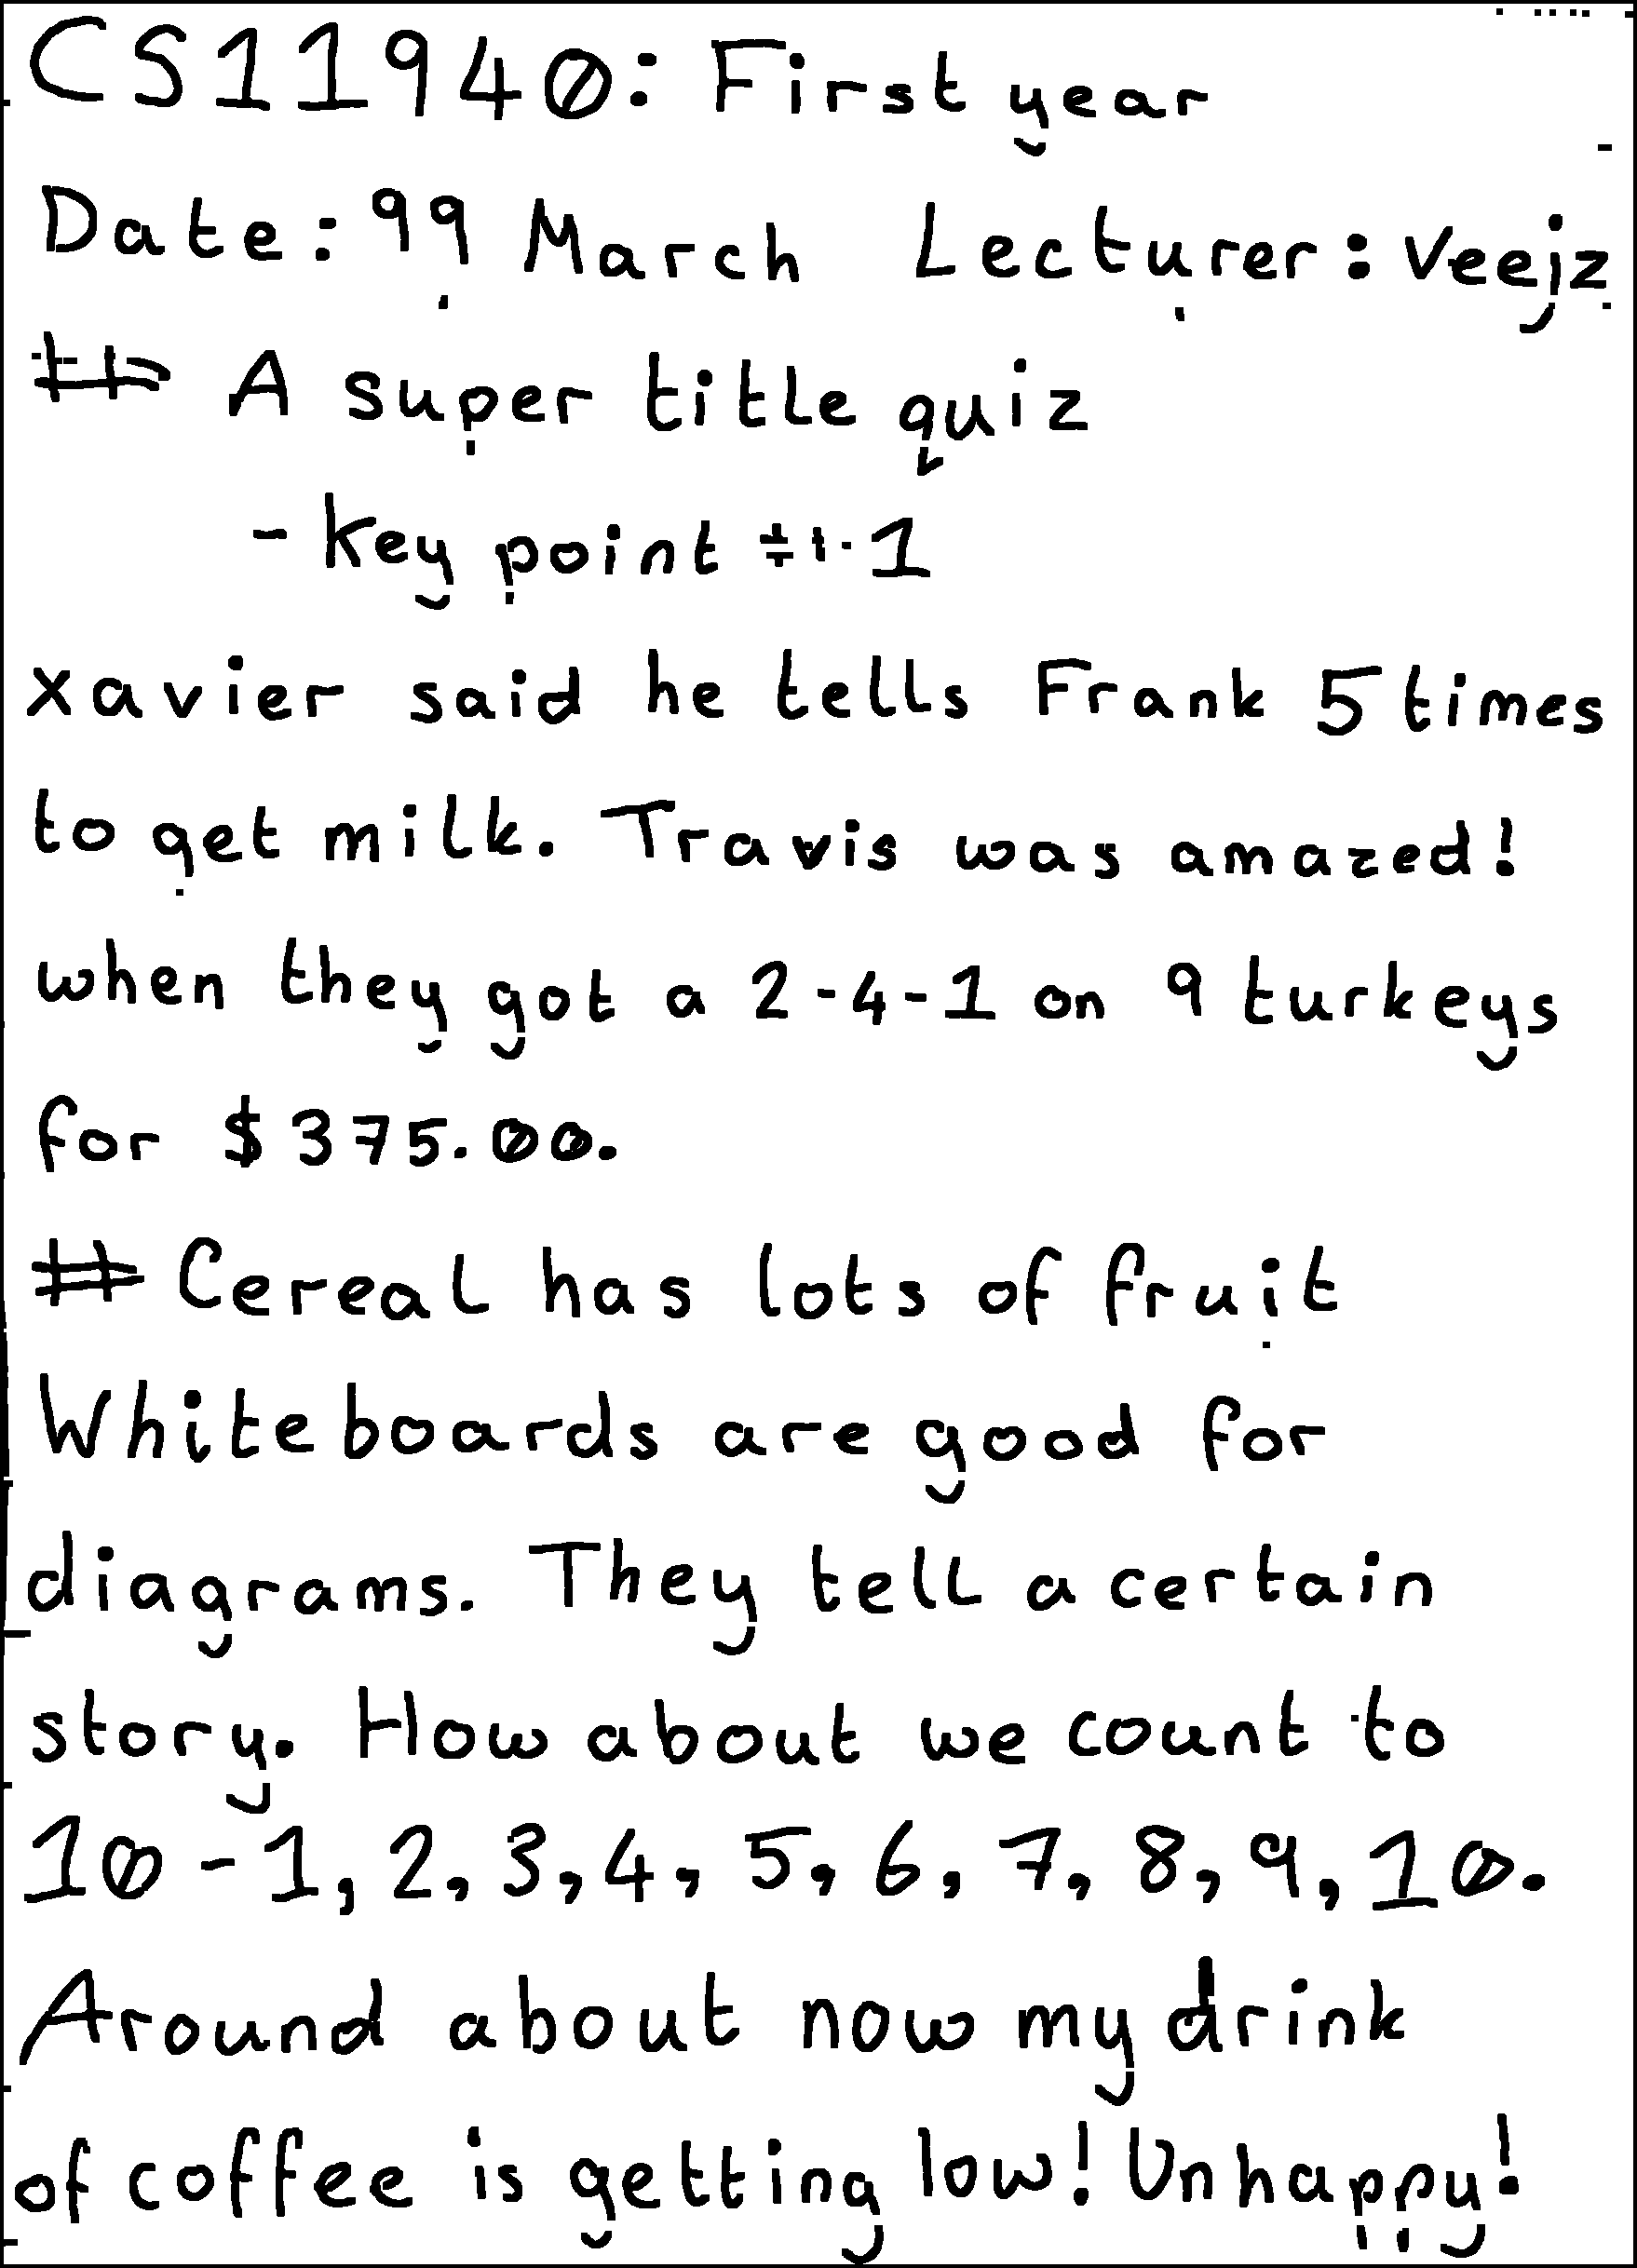 CS11940: First year
Date: 99 March Lecturer: Veejz
# A super title quiz
- key point #1
xavier said he tells Frank 5 times
to get milk. Travis was amazed!
when they got a 2-4-1 on 9 turkeys
for $375.00.
# Cereal has lots of fruit
Whiteboards are good for
diagrams. They tell a certain
story. How about we count to
10 - 1, 2, 3, 4, 5, 6, 7, 8, 9, 10.
Around about now my drink
of coffee is getting low! Unhappy!